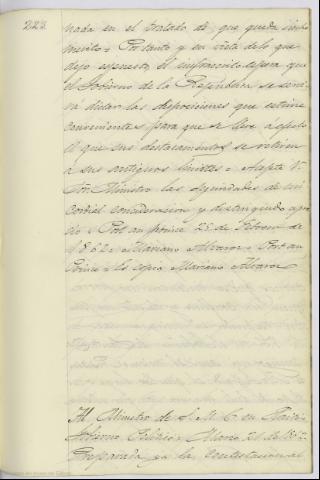 223.
nada en el tratado de que queda hecho
merito = Por tanto y en vista de lo que
dejo espuesto, el infrascrito espera que
el Gobierno de la Republica se servi-
rá dictar las disposiciones que estime
convenientes para que se lleve á efecto
el que sus destacamentos se retiren
a sus antiguos limites = Acepte V.
Señor Ministro las seguridades de mi
cordial consideracion y distinguido apre-
cio = Port au prince 25 de Febrero de
1862 = Mariano Alvarez = Port au
Prince = Es copia Mariano Alvarez
Al Ministro de S. M. C. en
Marzo 21 de
Preparada ya la contestacion al